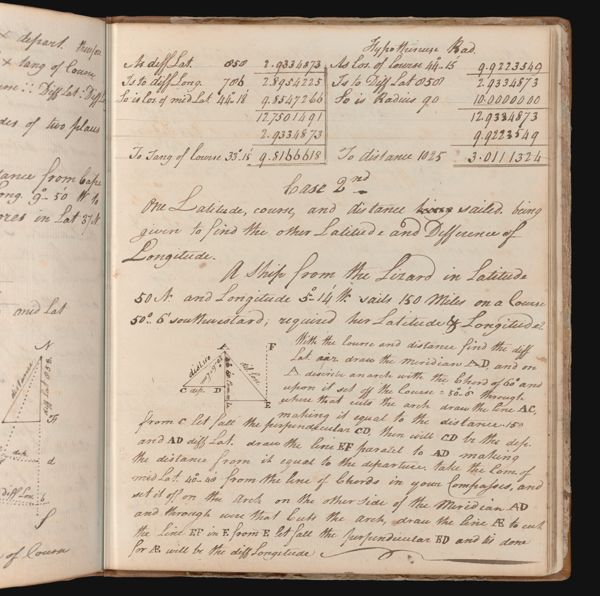 & depart. therefore
& tang of Course
Diff Lat : Diff L
of two places
distance from Cape
Long. 9°.50' W to
in Lat 37° N
mid Lat
N
distance
diff Lat 858
dep.
d
Diff Lon
b
of Course
Hypothenuse Rad
As diff Lat. 858 2.9334873
Is to diff Long. 786 2.8954225
So is Cos. of mid Lat. 44°.18' 9.8547266
12.7501491
2.9334873
To Tang of Course 33°.15' 9.8166618
As Cos. of Course 44.15 9.9223549
Is to Diff Lat 858 2.9334873
So is Radius 90 10.000000
12.9334873
9.9223549
To distance 1025 3.0111324
Case 2nd
One Latitude, course, and distance sailed. being
given to find the other Latitude and Difference of
Longitude.
A Ship from the Lizard in Latitude
50 N. and Longitude 5°-14' W. sails 150 Miles on a Course
50°.6' southwestard; required her Latitude & Longitude.
F
dist. 150
diff Lon
C dep. D
E
With the course and distance find the diff
Lat draw the meridian AD, and on
A describe an arch with the Chord of 60° and
upon it set off the Course = 50-6 through
where that cutts the arch draw the line AC,
making it equal to the distance. 150
from C let fall the perpendicular CD, then will CD be the dep.
and AD diff Lat. draw the line EF paralel to AD making
the distance from it equal to the departure. take the Com. of
mid Lat. from the line of Chords in your Compasses, and
set it off on the Arch on the other side of the Meridian AD
and through were that Cuts the arch, draw the line Æ to cut
the line EF in E from E let fall the perpendicular ED and its done
for Æ will be the diff Longitude